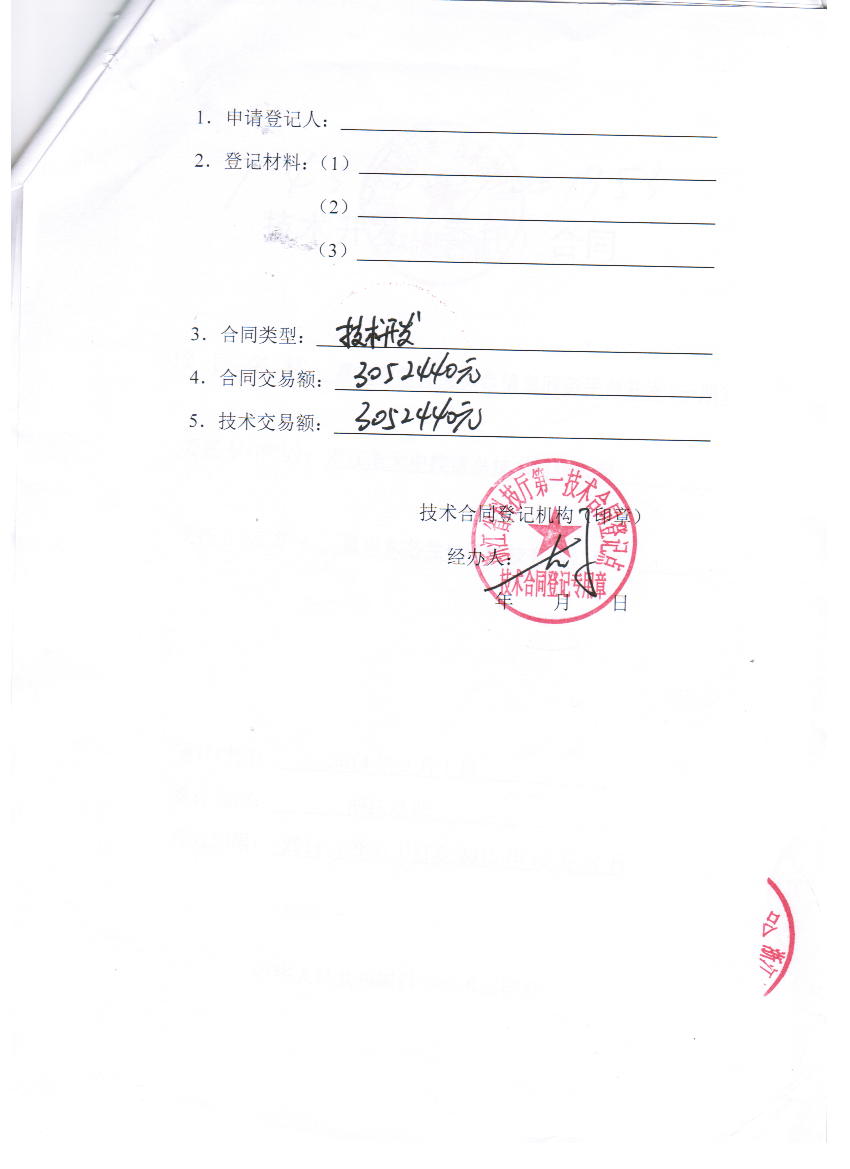 1．申请登记人：
2．登记材料：（1）
（2）
（3）
3．合同类型： 技术开发
4．合同交易额： 3052440元
5．技术交易额： 3052440元
技术合同登记机构（印章）
经办人：
年 月 日
浙江省科技厅第一技术合同登记点
技术合同登记专用章